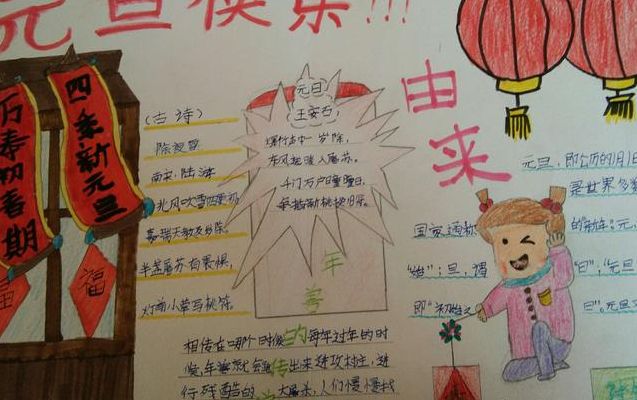 元旦快乐!!!
四季新元旦
万寿初春期
福
福
(古诗)
除夜雪
南宋·陆游
北风吹雪四更初
嘉瑞天教及岁除。
半盏屠苏
灯前小草写桃符。
元旦
王安石
爆竹声中一岁除,
东风送暖入屠苏。
千门万户曈曈日,
总把新桃换旧符。
年
兽
的
传
相传在哪个时候 每年过年的时
候,年兽就会 出来进攻村庄,进
行残酷的 大屠杀,人们慢慢找
由来
元旦,即公历的1月1
是世界多数
国家通称 的"新年":元,
"始";旦,谓 "日";"元旦
即"初始之 日"。元旦